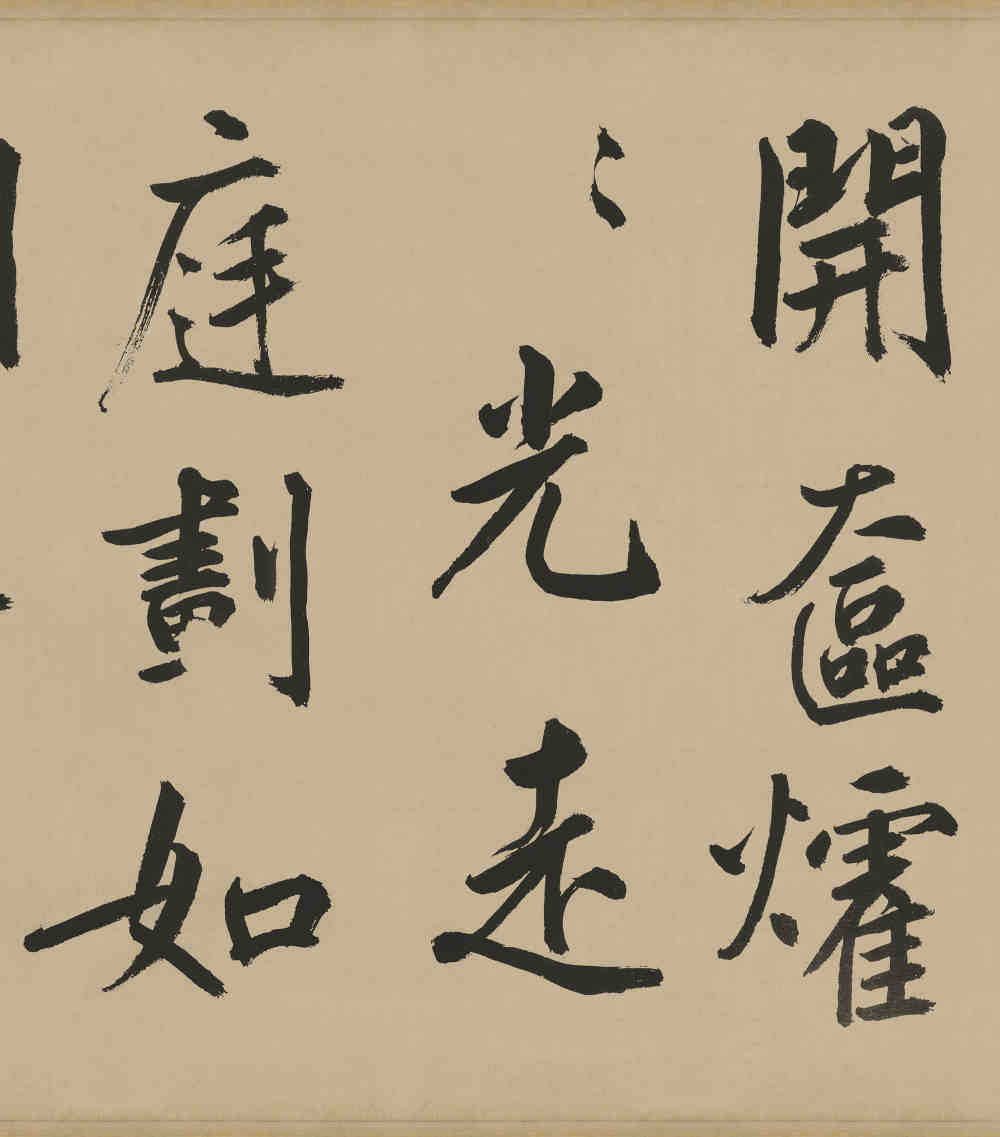 開奩㸌
〻光走
庭劃如